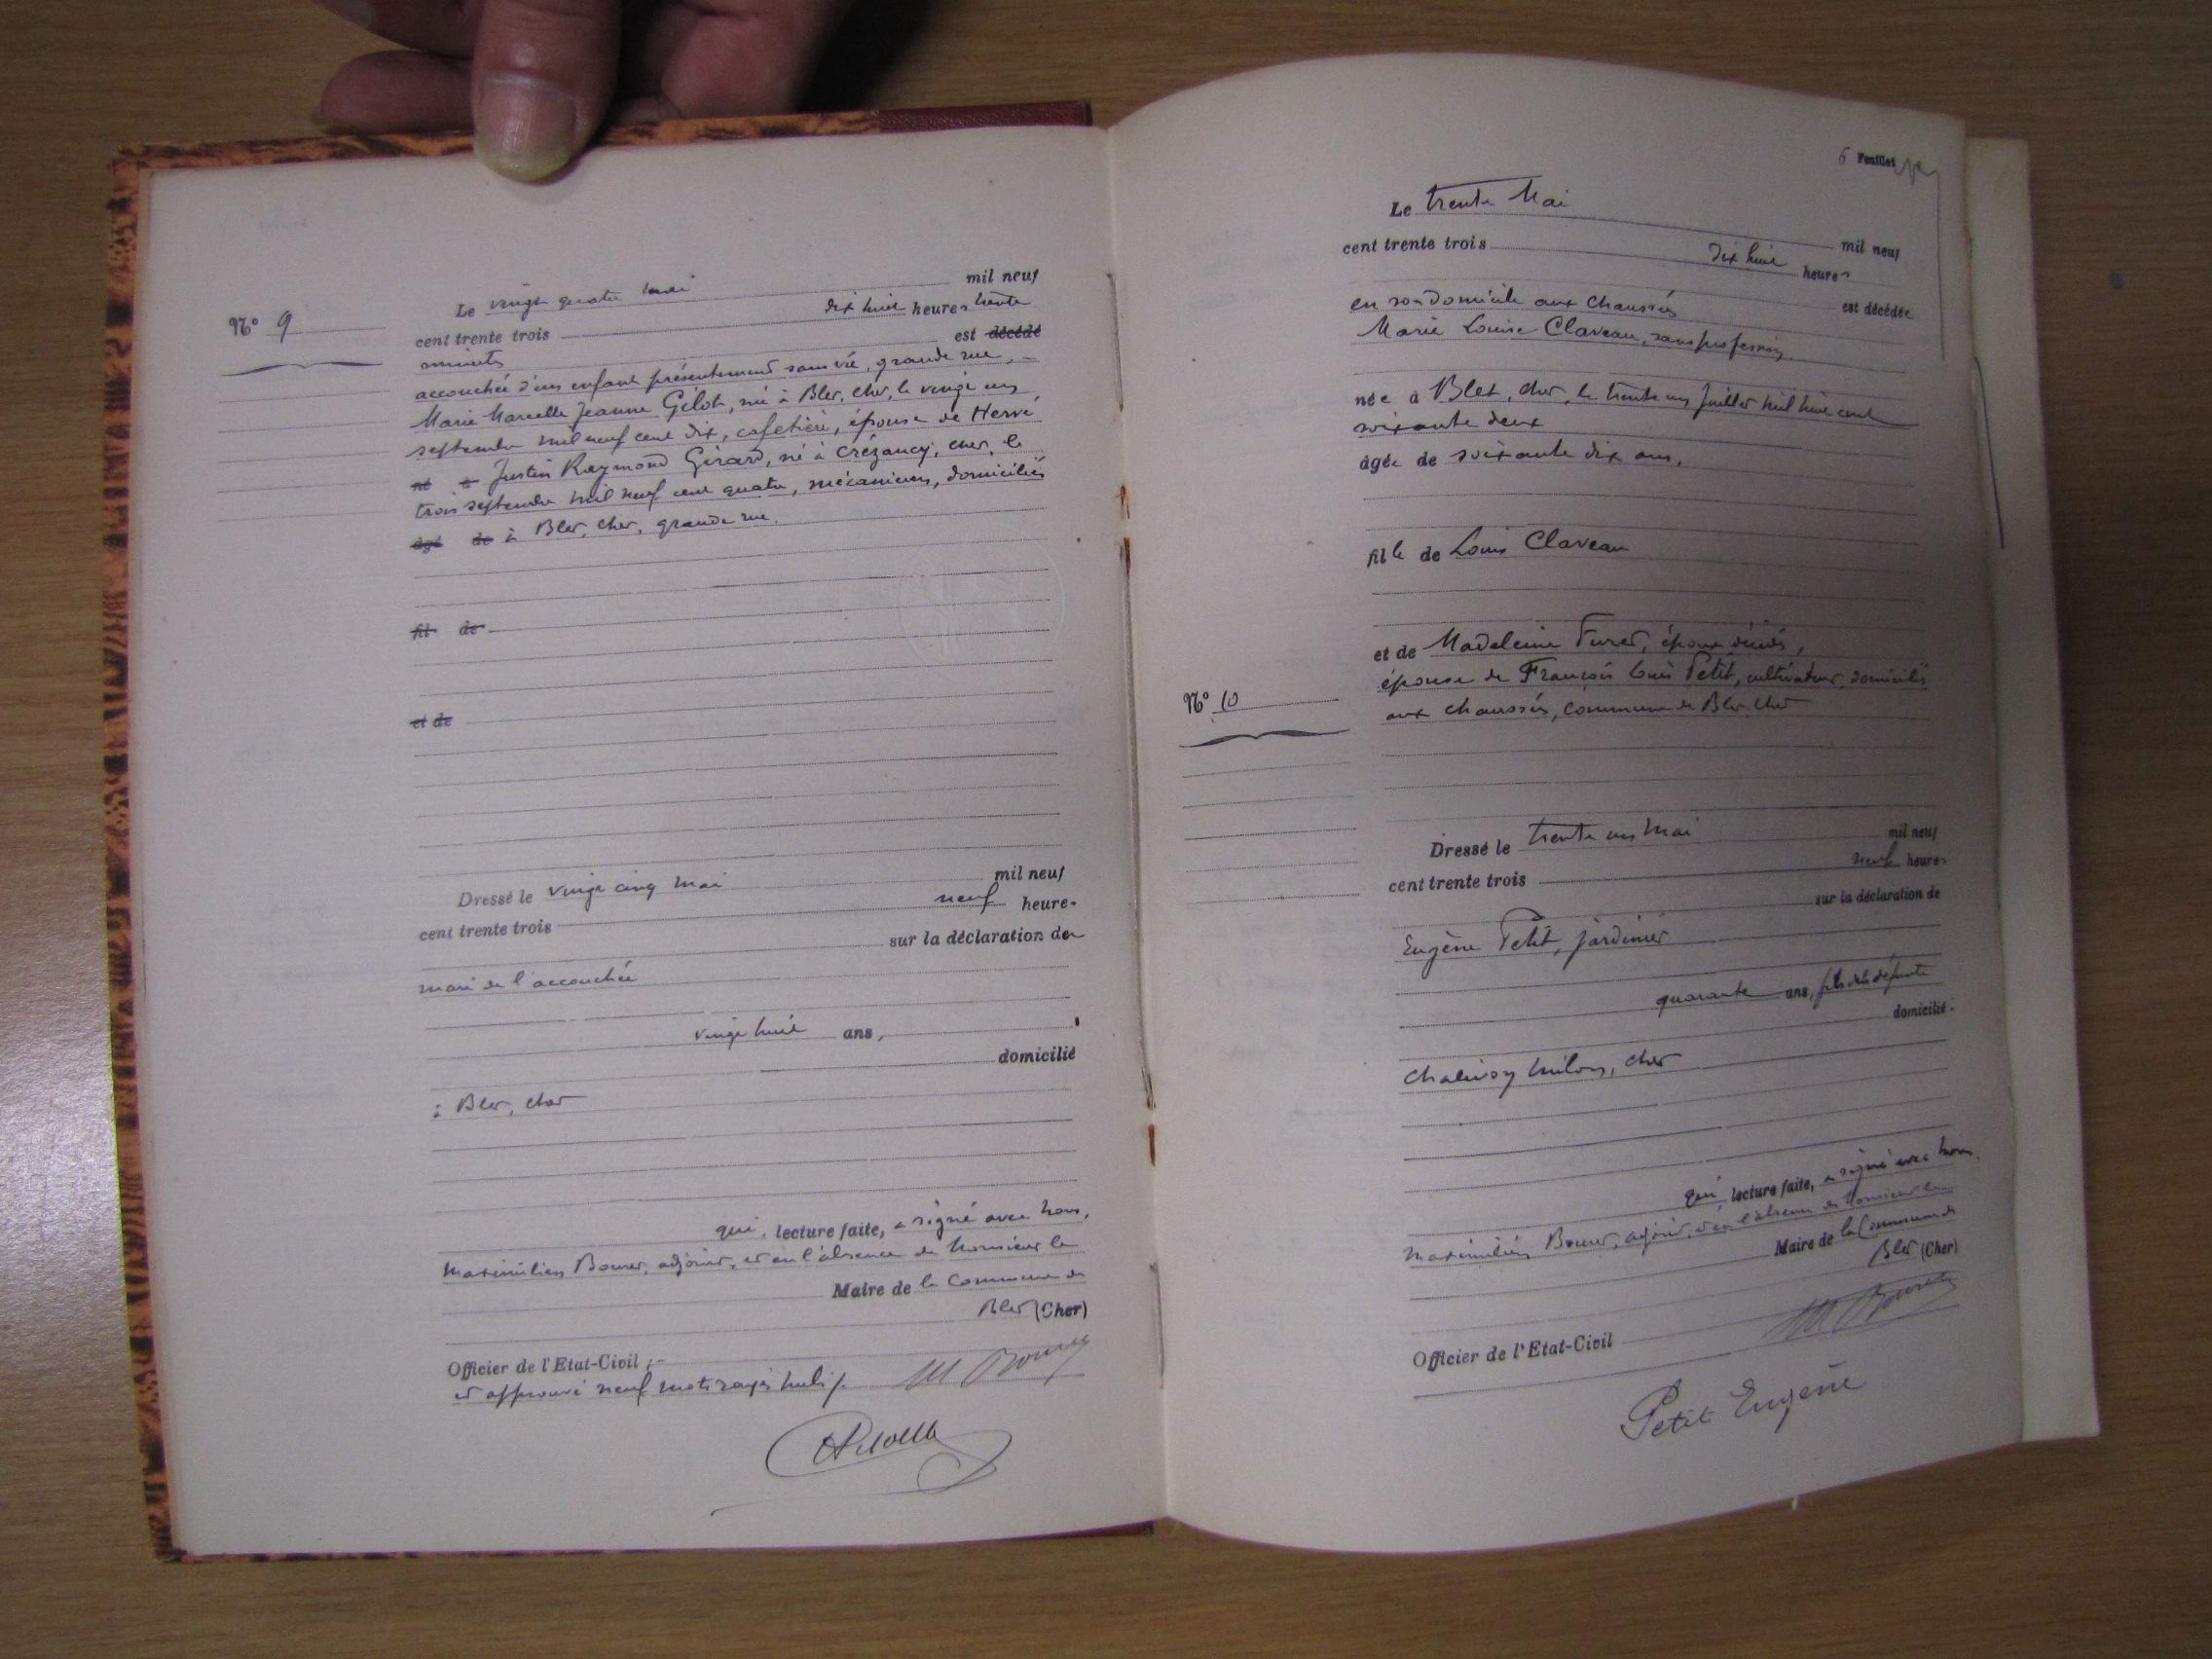 Nº 9
Le vingt quatre mai mil neuf
cent trente trois dix huit heures trente
minutes est décédé
accouchée d'un enfant présentement sans vie, grande rue,
Marie Marcelle Jeanne Gilot, née à Blet, Cher, le vingt un
septembre mil neuf cent dix, cafetière, épouse de Hervé
né à Justin Raymond Girard, né à Crézancy, Cher, le
trois septembre mil neuf cent quatre, mécanicien, domiciliés
âgé de à Blet, Cher, grande rue.
fil de
et de
Dressé le vingt cinq mai mil neuf
cent trente trois neuf heures
sur la déclaration du
mari de l'accouchée
vingt huit ans,
domicilié
à Blet, Cher
qui, lecture faite, a signé avec nous,
Maximilien Bonnet, adjoint, et en l'absence de Monsieur le
Maire de la Commune de
Blet (Cher)
Officier de l'Etat-Civil
et approuvé neuf mots rayés nuls
6 Feuillet
Nº 10
Le trente Mai mil neuf
cent trente trois dix huit heures
est décédée
en son domicile aux Chaussés
Marie Louise Claveau, sans profession
née à Blet, Cher, le trente un Juillet mil huit cent
soixante deux
âgée de soixante dix ans,
fille de Louis Claveau
et de Madeleine Furet, époux décédés,
épouse de François Louis Petit, cultivateur, domiciliés
aux Chaussés, Commune de Blet Cher
Dressé le trente un Mai mil neuf
cent trente trois neuf heures
sur la déclaration de
Eugène Petit, jardinier
quarante ans, fils de la défunte
domicilié
Chalivoy Milon, Cher
qui lecture faite, a signé avec nous,
Maximilien Bonnet, adjoint, et en l'absence de Monsieur le
Maire de la Commune de
Blet (Cher)
Officier de l'Etat-Civil
Petit Eugène